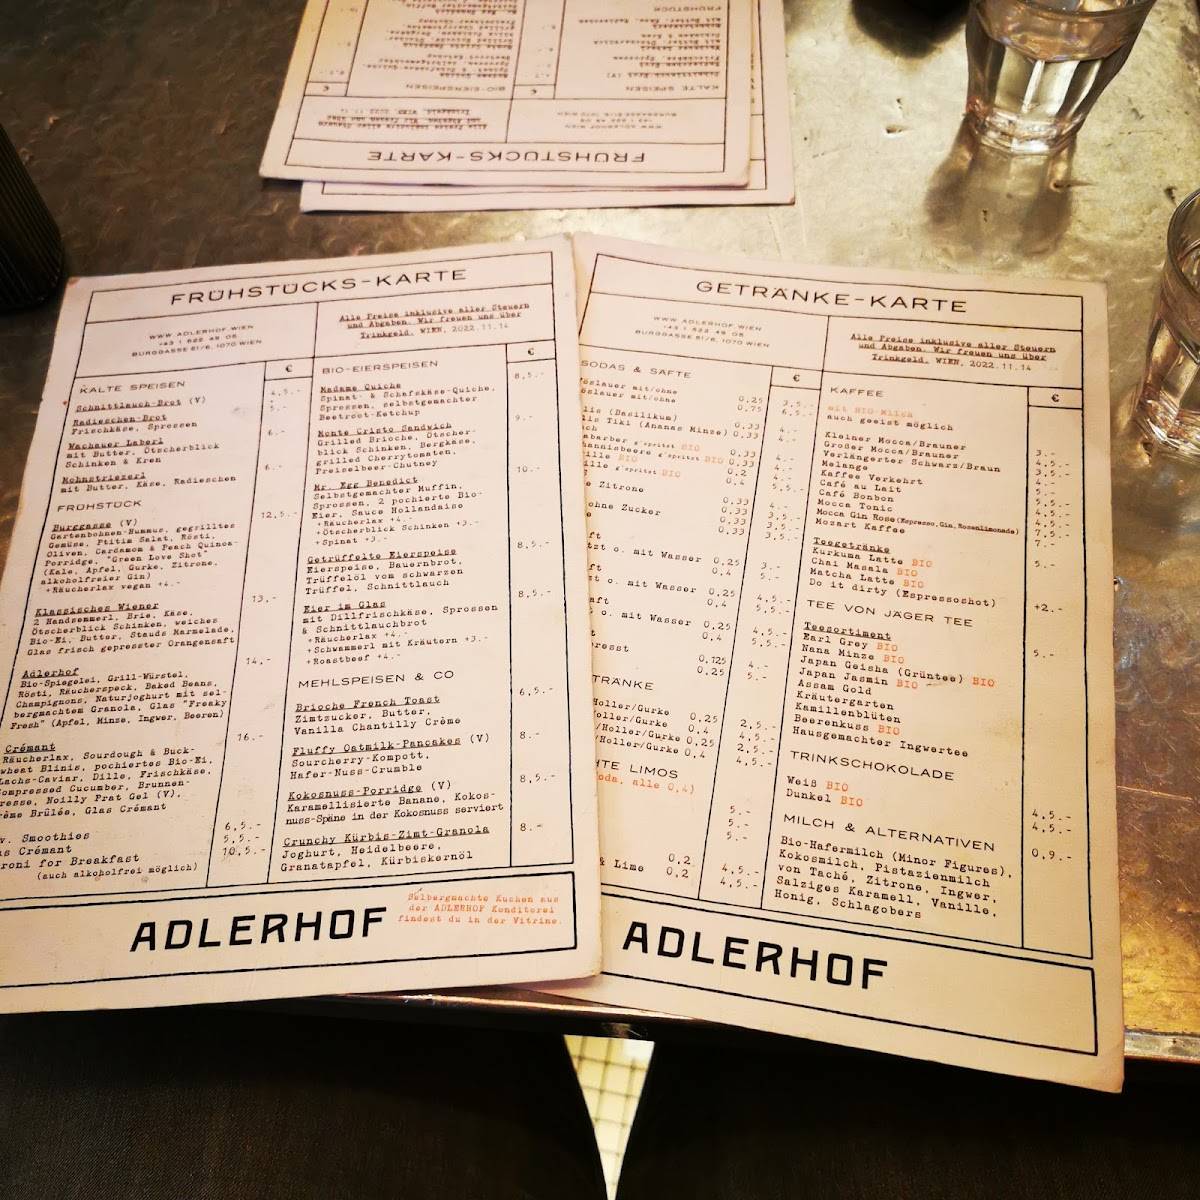 FRÜHSTÜCKS-KARTE
WWW.ADLERHOF.WIEN
+43 1 522 49 05
BURGGASSE 51/6, 1070 WIEN
KALTE SPEISEN €
Schnittlauch-Brot (V) 4,5.-
Radieschen-Brot 5.-
Frischkäse, Sprossen
Wachauer Laberl 6.-
mit Butter, Ötscherblick
Schinken & Kren
Mohnstriezerl 6.-
mit Butter, Käse, Radieschen
FRÜHSTÜCK
Burggasse (V) 12,5.-
Gartenbohnen-Humus, gegrilltes
Gemüse, Ptitim Salat, Rösti,
Oliven, Cardamom & Peach Quinoa-
Porridge, "Green Love Shot"
(Kale, Apfel, Gurke, Zitrone,
alkoholfreier Gin)
+Räucherlax vegan +4.-
Klassisches Wiener 13.-
2 Handsemmerl, Brie, Käse,
Ötscherblick Schinken, weiches
Bio-Ei, Butter, Stauds Marmelade,
Glas frisch gepresster Orangensaft
Adlerhof 14.-
Bio-Spiegelei, Grill-Würstel,
Rösti, Räucherspeck, Baked Beans,
Champignons, Naturjoghurt mit sel-
bergmachtem Granola, Glas "Freaky
Fresh" (Apfel, Minze, Ingwer, Beeren)
Crémant 16.-
Räucherlax, Sourdough & Buck-
wheat Blinis, pochiertes Bio-Ei,
Lachs-Caviar, Dille, Frischkäse,
Compressed Cucumber, Brunnen-
resse, Noilly Prat Gel (V),
rème Brûlée, Glas Crémant
v. Smoothies 6,5.-
as Crémant 5,5.-
roni for Breakfast 10,5.-
(auch alkoholfrei möglich)
Alle Preise inklusive aller Steuern
und Abgaben. Wir freuen uns über
Trinkgeld. WIEN, 2022.11.14
BIO-EIERSPEISEN €
Madame Quiche 8,5.-
Spinat- & Schafskäse-Quiche,
Sprossen, selbstgemachter
Beetroot-Ketchup
Monte Cristo Sandwich 9.-
Grilled Brioche, Ötscher-
blick Schinken, Bergkäse,
grilled Cherrytomaten,
Preiselbeer-Chutney
Mr. Egg Benedict 10.-
Selbstgemachter Muffin,
Sprossen, 2 pochierte Bio-
Eier, Sauce Hollandaise
+Räucherlax +4.-
+Ötscherblick Schinken +3.-
+Spinat +3.-
Getrüffelte Eierspeise 8,5.-
Eierspeise, Bauernbrot,
Trüffelöl vom schwarzen
Trüffel, Schnittlauch
Eier im Glas 8,5.-
mit Dillfrischkäse, Sprossen
& Schnittlauchbrot
+Räucherlax +4.-
+Schwammerl mit Kräutern +3.-
+Roastbeef +4.-
MEHLSPEISEN & CO
Brioche French Toast 6,5.-
Zimtzucker, Butter,
Vanilla Chantilly Crème
Fluffy Oatmilk-Pancakes (V) 8.-
Sourcherry-Kompott,
Hafer-Nuss-Crumble
Kokosnuss-Porridge (V) 8,5.-
Karamellisierte Banane, Kokos-
nuss-Späne in der Kokosnuss serviert
Crunchy Kürbis-Zimt-Granola 8.-
Joghurt, Heidelbeere,
Granatapfel, Kürbiskernöl
ADLERHOF
Selbergmachte Kuchen aus
der ADLERHOF Konditorei
findest du in der Vitrine.
GETRÄNKE-KARTE
WWW.ADLERHOF.WIEN
+43 1 522 49 05
BURGGASSE 51/6, 1070 WIEN
SODAS & SÄFTE €
öslauer mit/ohne 0,25 3,5.-
öslauer mit/ohne 0,75 6,5.-
lis (Basilikum) 0,33 4.-
lis Tiki (Ananas Minze) 0,33 4.-
abarber g'spritzt BIO 0,33
annisbeere g'spritzt BIO 0,33
ille BIO 0,2
ille g'spritzt BIO 0,4
e Zitrone
0,33
ohne Zucker 0,33
0,33
ft
tzt o. mit Wasser 0,25 3.-
0,4 5.-
ft
tzt o. mit Wasser 0,25 4,5.-
0,4 5,5.-
aft
o. mit Wasser 0,25 4,5.-
0,4 5,5.-
resst 0,125 4.-
0,25 5.-
TRÄNKE
Holler/Gurke 0,25 2,5.-
Holler/Gurke 0,4 4,5.-
/Holler/Gurke 0,25 2,5.-
/Holler/Gurke 0,4 4,5.-
HTE LIMOS
oda, alle 0,4)
5.-
5.-
5.-
0,2 4,5.-
& Lime 0,2 4,5.-
Alle Preise inklusive aller Steuern
und Abgaben. Wir freuen uns über
Trinkgeld. WIEN, 2022.11.14
KAFFEE €
mit BIO-Milch
auch geeist möglich
Kleiner Mocca/Brauner 3.-
Großer Mocca/Brauner 4,5.-
Verlängerter Schwarz/Braun 3,5.-
Melange 4.-
Kaffee Verkehrt 5.-
Café au Lait 5.-
Café Bonbon 4,5.-
Mocca Tonic 4,5.-
Mocca Gin Rose (Espresso, Gin, Rosenlimonade) 7,5.-
Mozart Kaffee 7.-
Teegetränke 5.-
Kurkuma Latte BIO
Chai Masala BIO
Matcha Latte BIO
Do it dirty (Espressoshot) +2.-
TEE VON JÄGER TEE
Teesortiment 5.-
Earl Grey BIO
Nana Minze BIO
Japan Geisha (Grüntee) BIO
Japan Jasmin BIO
Assam Gold
Kräutergarten
Kamillenblüten
Beerenkuss BIO
Hausgemachter Ingwertee
TRINKSCHOKOLADE
Weiß BIO 4,5.-
Dunkel BIO 4,5.-
MILCH & ALTERNATIVEN
Bio-Hafermilch (Minor Figures), 0,9.-
Kokosmilch, Pistazienmilch
von Taché, Zitrone, Ingwer,
Salziges Karamell, Vanille,
Honig, Schlagobers
ADLERHOF
FRÜHSTÜCKS-KARTE
WWW.ADLERHOF.WIEN
BURGGASSE 51/6, 1070 WIEN
Alle Preise inklusive aller Steuern
und Abgaben. Wir freuen uns über
Trinkgeld. WIEN, 2022.11.14
KALTE SPEISEN €
BIO-EIERSPEISEN €
FRÜHSTÜCK